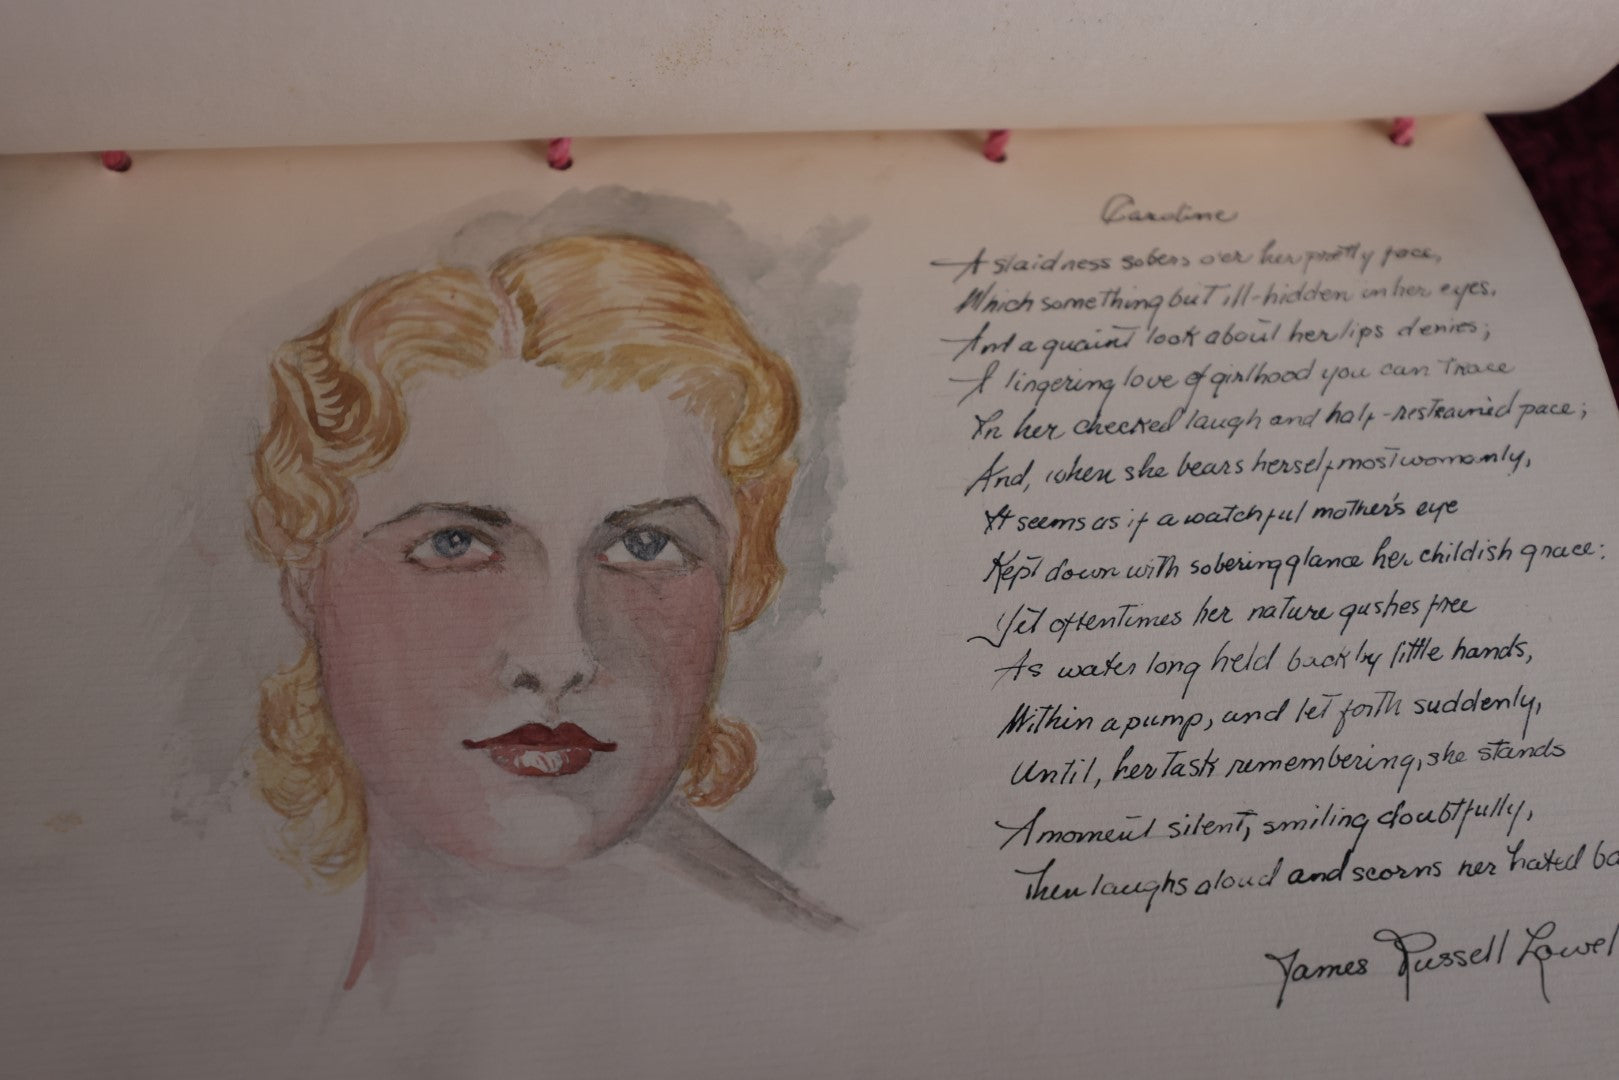 Caroline
A staidness sobers o'er her pretty face,
Which something but ill-hidden in her eyes,
And a quaint look about her lips denies;
A lingering love of girlhood you can trace
In her checked laugh and half-restrained pace;
And, when she bears herself most womanly,
It seems as if a watchful mother's eye
Kept down with sobering glance her childish grace:
Yet oftentimes her nature gushes free
As water long held back by little hands,
Within a pump, and let forth suddenly,
Until, her task remembering, she stands
A moment silent, smiling doubtfully,
Then laughs aloud and scorns her hated
James Russell Lowel